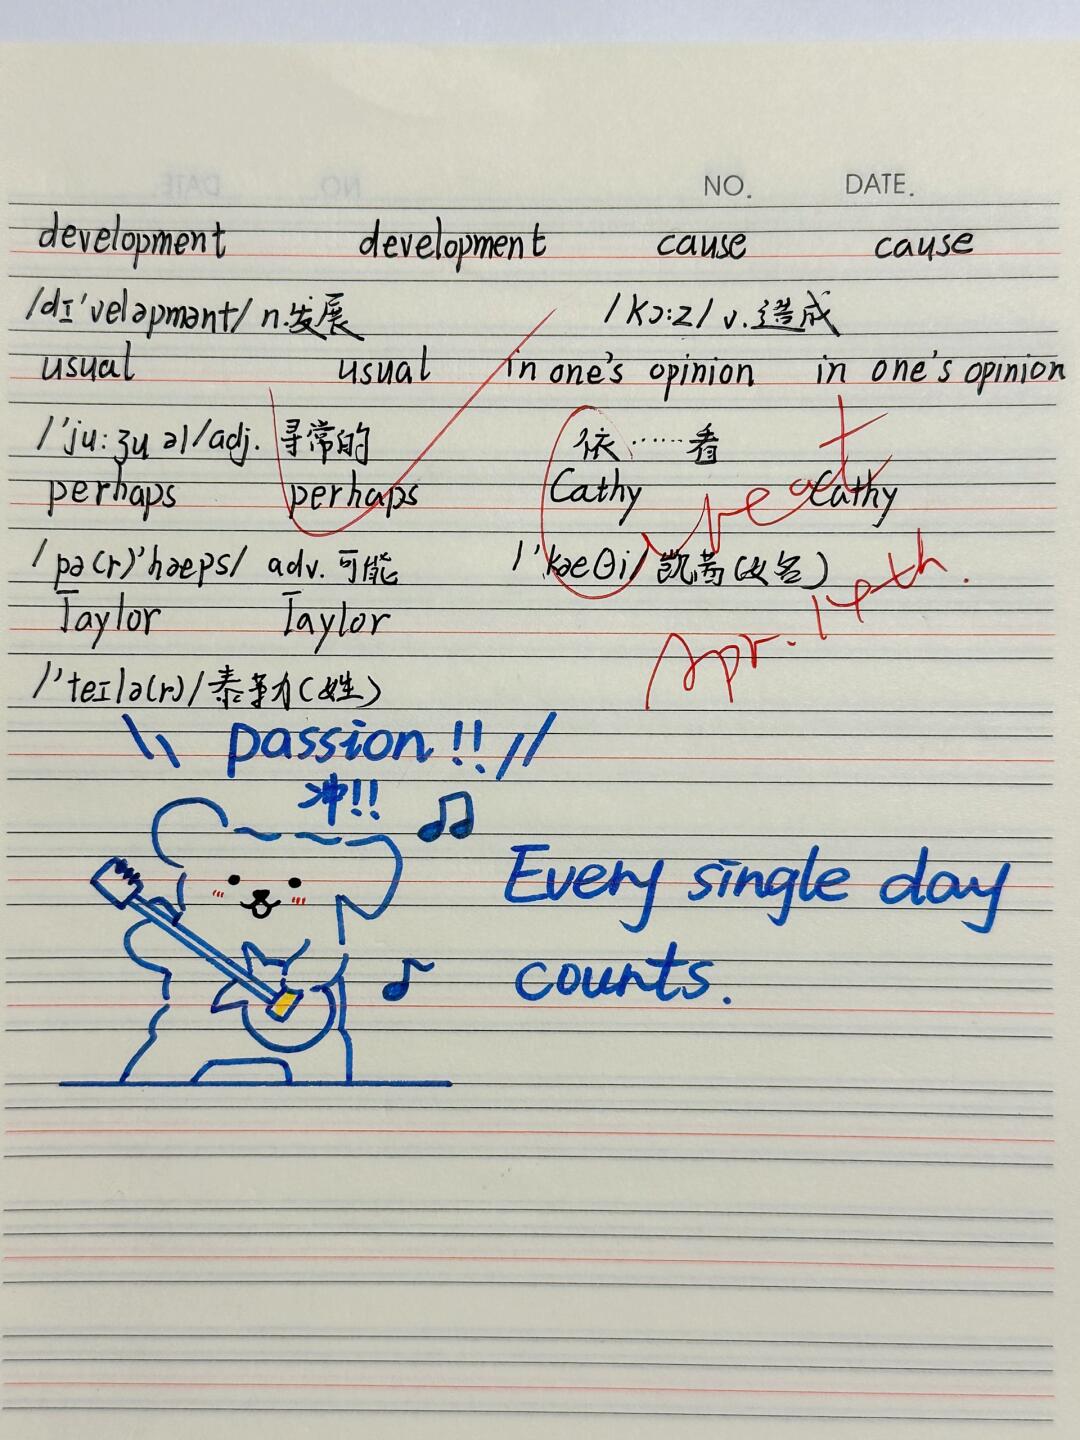 NO. DATE.
development development cause cause
/dɪ'veləpmənt/ n.发展 /kɔ:z/ v.造成
usual usual in one's opinion in one's opinion
/'ju:ʒuəl/adj. 寻常的 依……看
perhaps perhaps Cathy Cathy
/pə(r)'hæps/ adv.可能 /'kæθi/ 凯茜(女名)
Taylor Taylor
/'teɪlə(r)/泰勒(姓)
Great
Apr. 14th.
\\ passion!! //
冲!!
Every single day
counts.